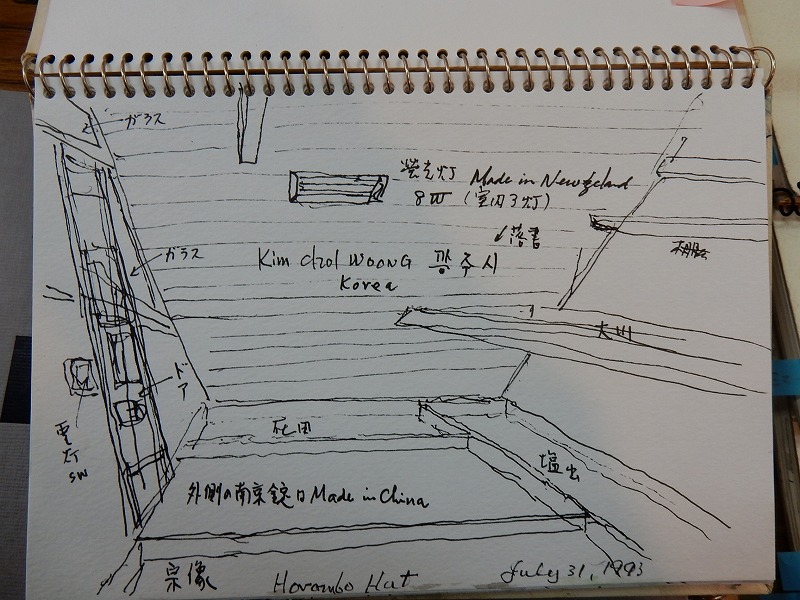 ガラス
螢光灯 Made in Newzeland
8W (室内3灯)
落書
ガラス
Kim chol WOONG 광주시
Korea
大川
ドア
電灯
SW
松田
塩出
外側の南京錠は Made in China
宗像
Horombo Hut
July 31, 1993